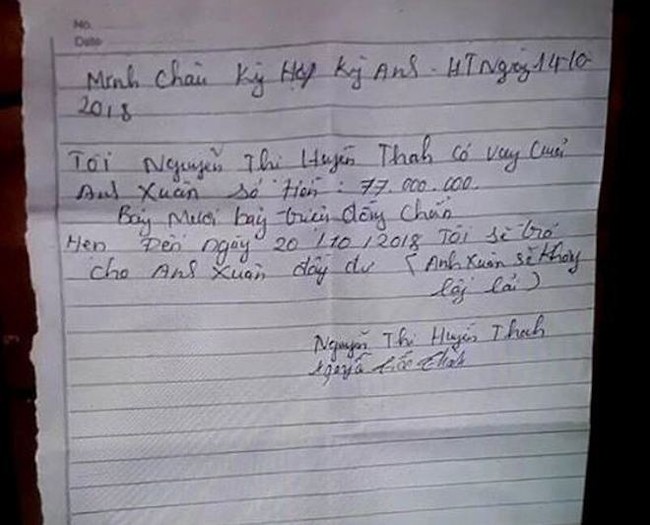 No.
Date
Minh Châu Kỳ Hợp Kỳ Anh - HT Ngày 14-10
2018
Tôi Nguyễn Thị Huyền Thanh có vay của
Anh Xuân số tiền : 77.000.000.
Bảy Mươi bảy triệu đồng Chẵn
Hẹn Đến ngày 20/10/2018 Tôi sẽ trả
cho Anh Xuân đầy đủ (Anh Xuân sẽ không
lấy lãi)
Nguyễn Thị Huyền Thanh